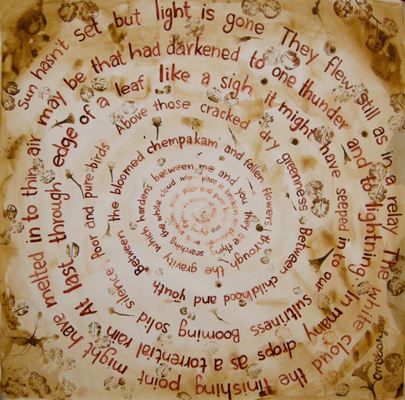 Sun hasn't set but light is gone They flew still as in a relay The write cloud the finishing point might have melted in to thin air may be that had darkened to one thunder and to lightning In many drops as a torrential rain At last through edge of a leaf like a sigh it might have seeped in to our sultriness Booming solid silence Poor and pure birds Above those cracked dry greenness Between childhood and youth Between the bloomed chempakam and fallen flowers through the gravity which hardens between me and you they are flying searching white cloud